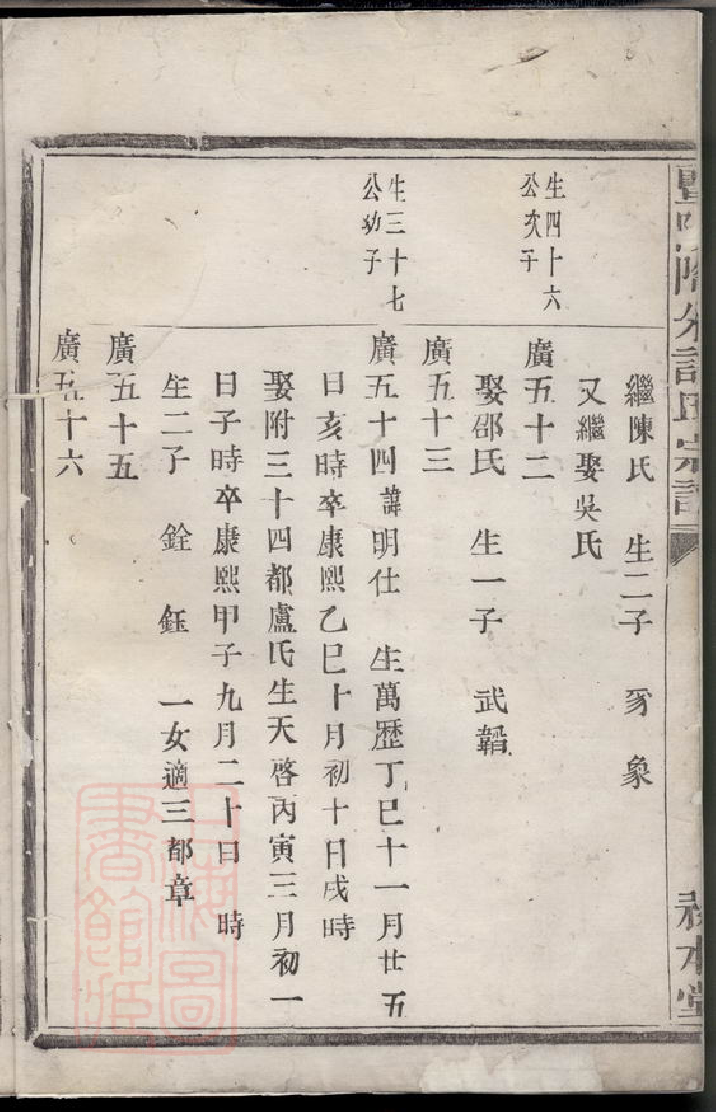 繼陳氏　生二子　豸　象
又繼娶吳氏
生四十六
公次子
廣五十二
娶邵氏　生一子　武韜
廣五十三
生三十七
公幼子
廣五十四諱明仕　生萬歷丁巳十一月廿五
日亥時卒康熙乙巳十月初十日戌時
娶附三十四都盧氏生天啓丙寅三月初一
日子時卒康熙甲子九月二十日　時
生二子　銓　鈺　一女適三都章
廣五十五
廣五十六
上海圖
書館藏